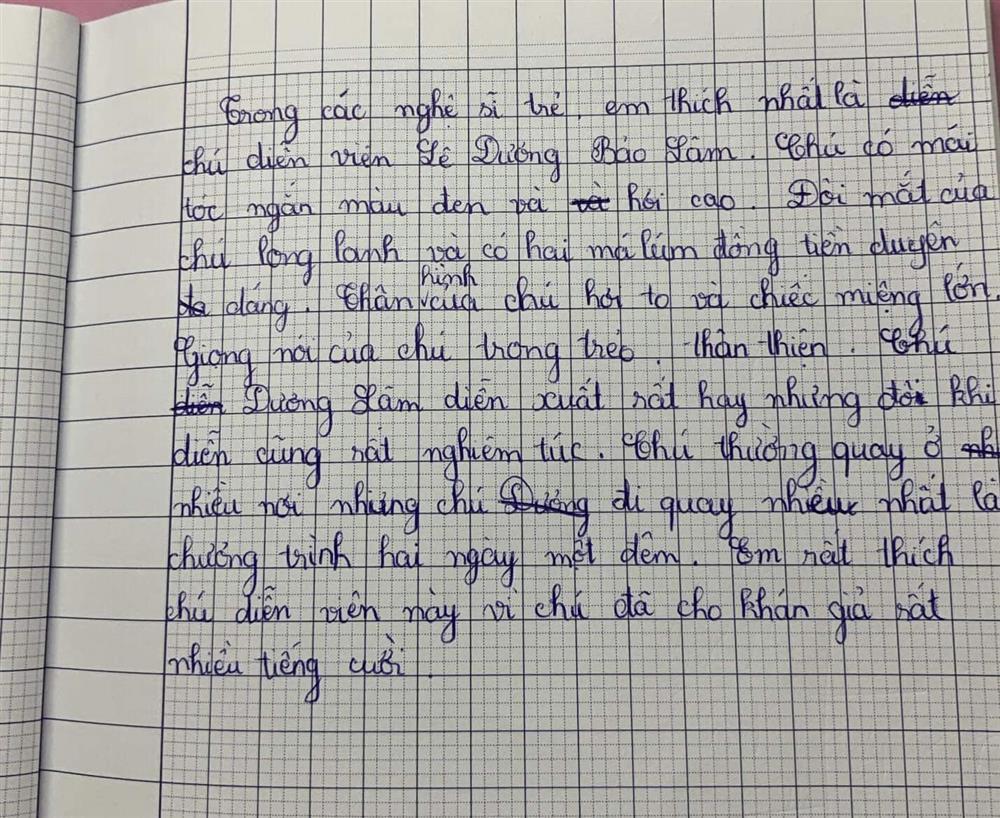 Trong các nghệ sĩ trẻ, em thích nhất là diễn
chú diễn viên Lê Dương Bảo Lâm. Chú có mái
tóc ngắn màu đen và và hói cao. Đôi mắt của
chú long lanh và có hai má lúm đồng tiền duyên
dáng. Thân hình của chú hơi to và chiếc miệng lớn.
Giọng nói của chú trong trẻo, thân thiện. Chú
diễn Dương Lâm diễn xuất rất hay nhưng đôi khi
diễn cũng rất nghiêm túc. Chú thường quay ở nh
nhiều nơi nhưng chú Dương đi quay nhiều nhất là
chương trình hai ngày một đêm. Em rất thích
chú diễn viên này vì chú đã cho khán giả rất
nhiều tiếng cười.